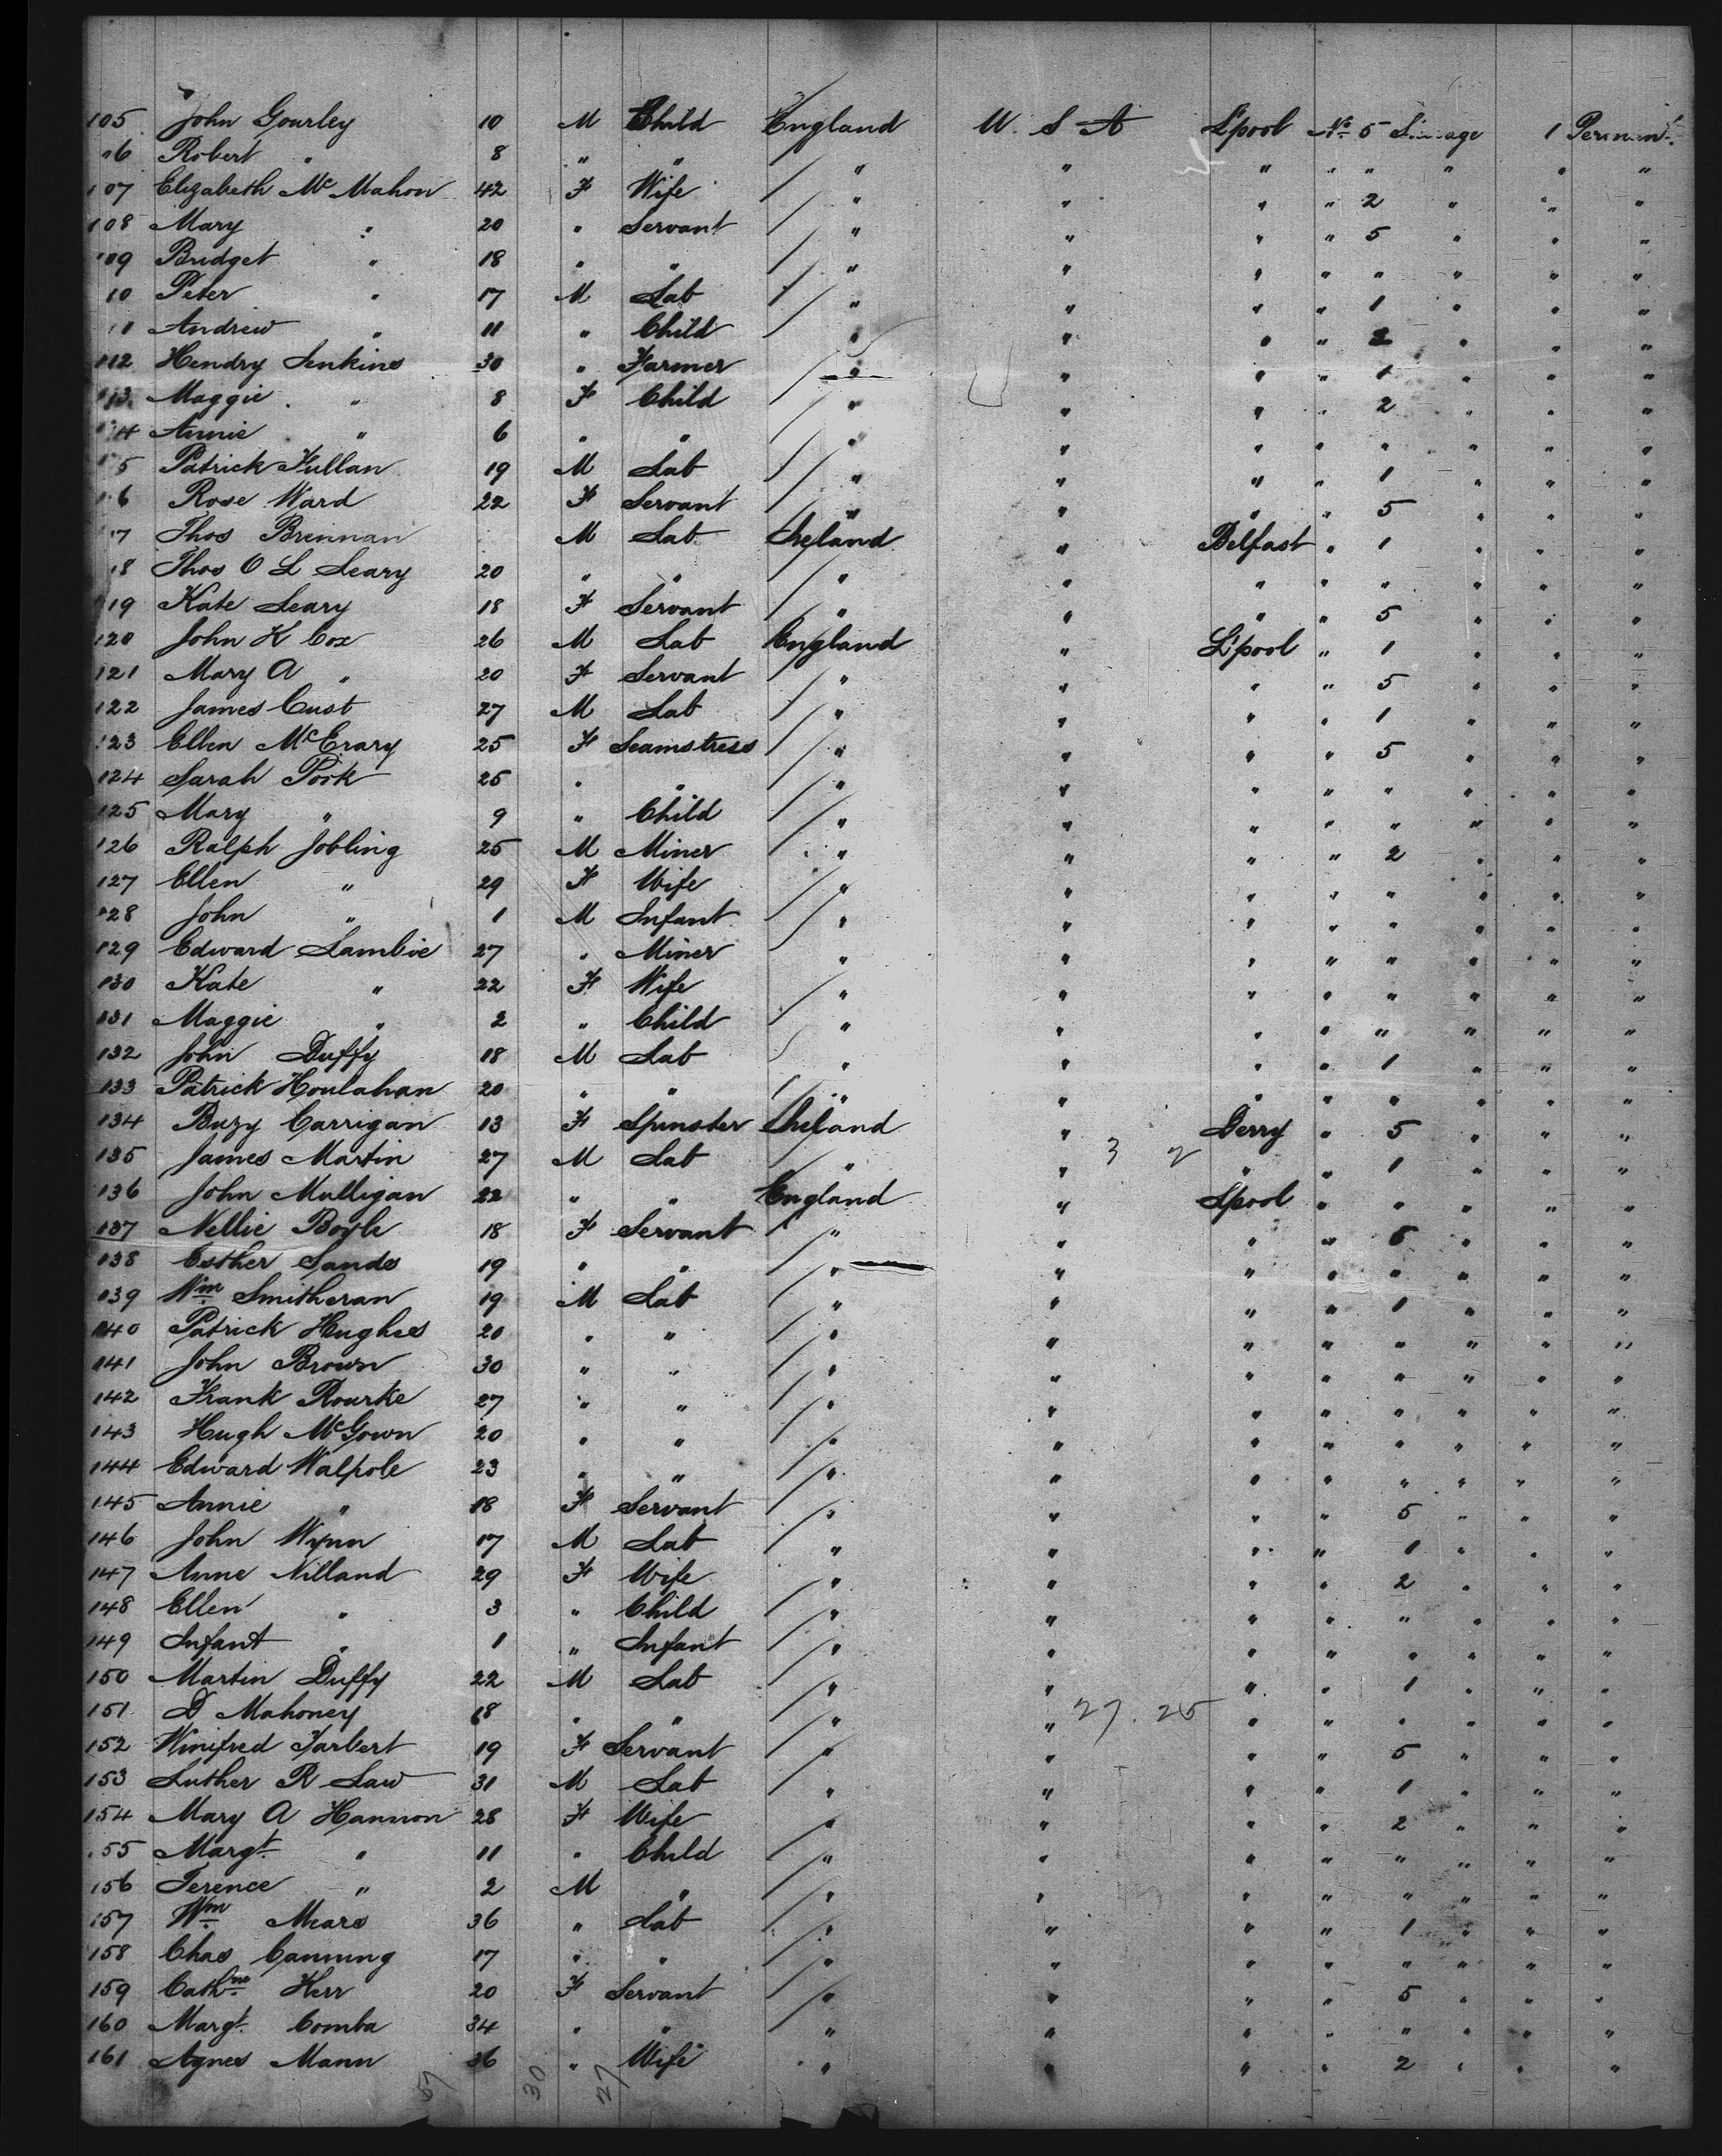 105 John Gourley 10 M Child England U. S A L'pool No 5 1
Robert " 8 " " " " " " " " " "
107 Elizabeth Mc Mahon 42 F Wife " " " " 2 " " "
108 Mary " 20 " Servant " " " " 5 " " "
109 Bridget " 18 " " " " " " " " " "
10 Peter " 17 M Lab " " " " 1 " " "
11 Andrew " 11 " Child " " " " 2 " " "
112 Hendry Jenkins 30 " Farmer " " " " 1 " " "
113 Maggie " 8 F Child " " " " 2 " " "
14 Annie " 6 " " " " " " " " " "
5 Patrick Fullan 19 M Lab " " " " 1 " " "
6 Rose Ward 22 F Servant " " " " 5 " " "
7 Thos Brennan M Lab Ireland " Belfast " 1 " " "
18 Thos O L Leary 20 " " " " " " " " " "
119 Kate Leary 18 F Servant " " " " 5 " " "
120 John K Cox 26 M Lab England " L'pool " 1 " " "
121 Mary A " 20 F Servant " " " " 5 " " "
122 James Cust 27 M Lab " " " " 1 " " "
123 Ellen McCrary 25 F Seamstress " " " " 5 " " "
124 Sarah Pook 25 " " " " " " " " " "
125 Mary " 9 " Child " " " " " " " "
126 Ralph Jobling 25 M Miner " " " " 2 " " "
127 Ellen " 29 F Wife " " " " " " " "
128 John " 1 M Infant " " " " " " " "
129 Edward Lambie 27 " Miner " " " " " " " "
130 Kate " 22 F Wife " " " " " " " "
131 Maggie " 2 " Child " " " " " " " "
132 John Duffy 18 M Lab " " " " 1 " " "
133 Patrick Houlahan 20 " " " " " " " " " "
134 Buzy Carrigan 13 F Spinster Ireland " Derry " 5 " " "
135 James Martin 27 M Lab " " 3 2 " " 1 " " "
136 John Mulligan 22 " " England " Lpool " " " " "
137 Nellie Boyle 18 F Servant " " " " 5 " " "
138 Esther Sands 19 " " " " " " " " " "
139 Wm Smitheran 19 M Lab " " " " 1 " " "
140 Patrick Hughes 20 " " " " " " " " " "
141 John Brown 30 " " " " " " " " " "
142 Frank Rourke 27 " " " " " " " " " "
143 Hugh McGown 20 " " " " " " " " " "
144 Edward Walpole 23 " " " " " " " " " "
145 Annie " 18 F Servant " " " " 5 " " "
146 John Wynn 17 M Lab " " " " 1 " " "
147 Anne Nilland 29 F Wife " " " " 2 " " "
148 Ellen " 3 " Child " " " " " " " "
149 Infant " 1 " Infant " " " " " " " "
150 Martin Duffy 22 M Lab " " " " 1 " " "
151 D Mahoney 68 " " " " 27. 25 " " " " " "
152 Winifred Tarbert 19 F Servant " " " " 5 " " "
153 Luther R Law 31 M Lab " " " " 1 " " "
154 Mary A Hannon 28 F Wife " " " " 2 " " "
55 Margt " 11 " Child " " " " " " " "
156 Terence " 2 M " " " " " " " " "
157 Wm Mears 36 " Lab " " " " 1 " " "
158 Chas Canning 17 " " " " " " " " " "
159 Cathne Kerr 20 F Servant " " " " 5 " " "
160 Margt Comba 34 " " " " " " " " " "
161 Agnes Mann 36 " Wife " " " " 2 " " "
30 27